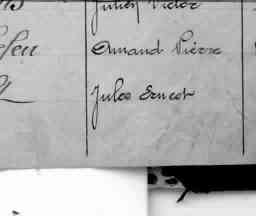 Julien Victor
Amand Pierre
Jules Ernest